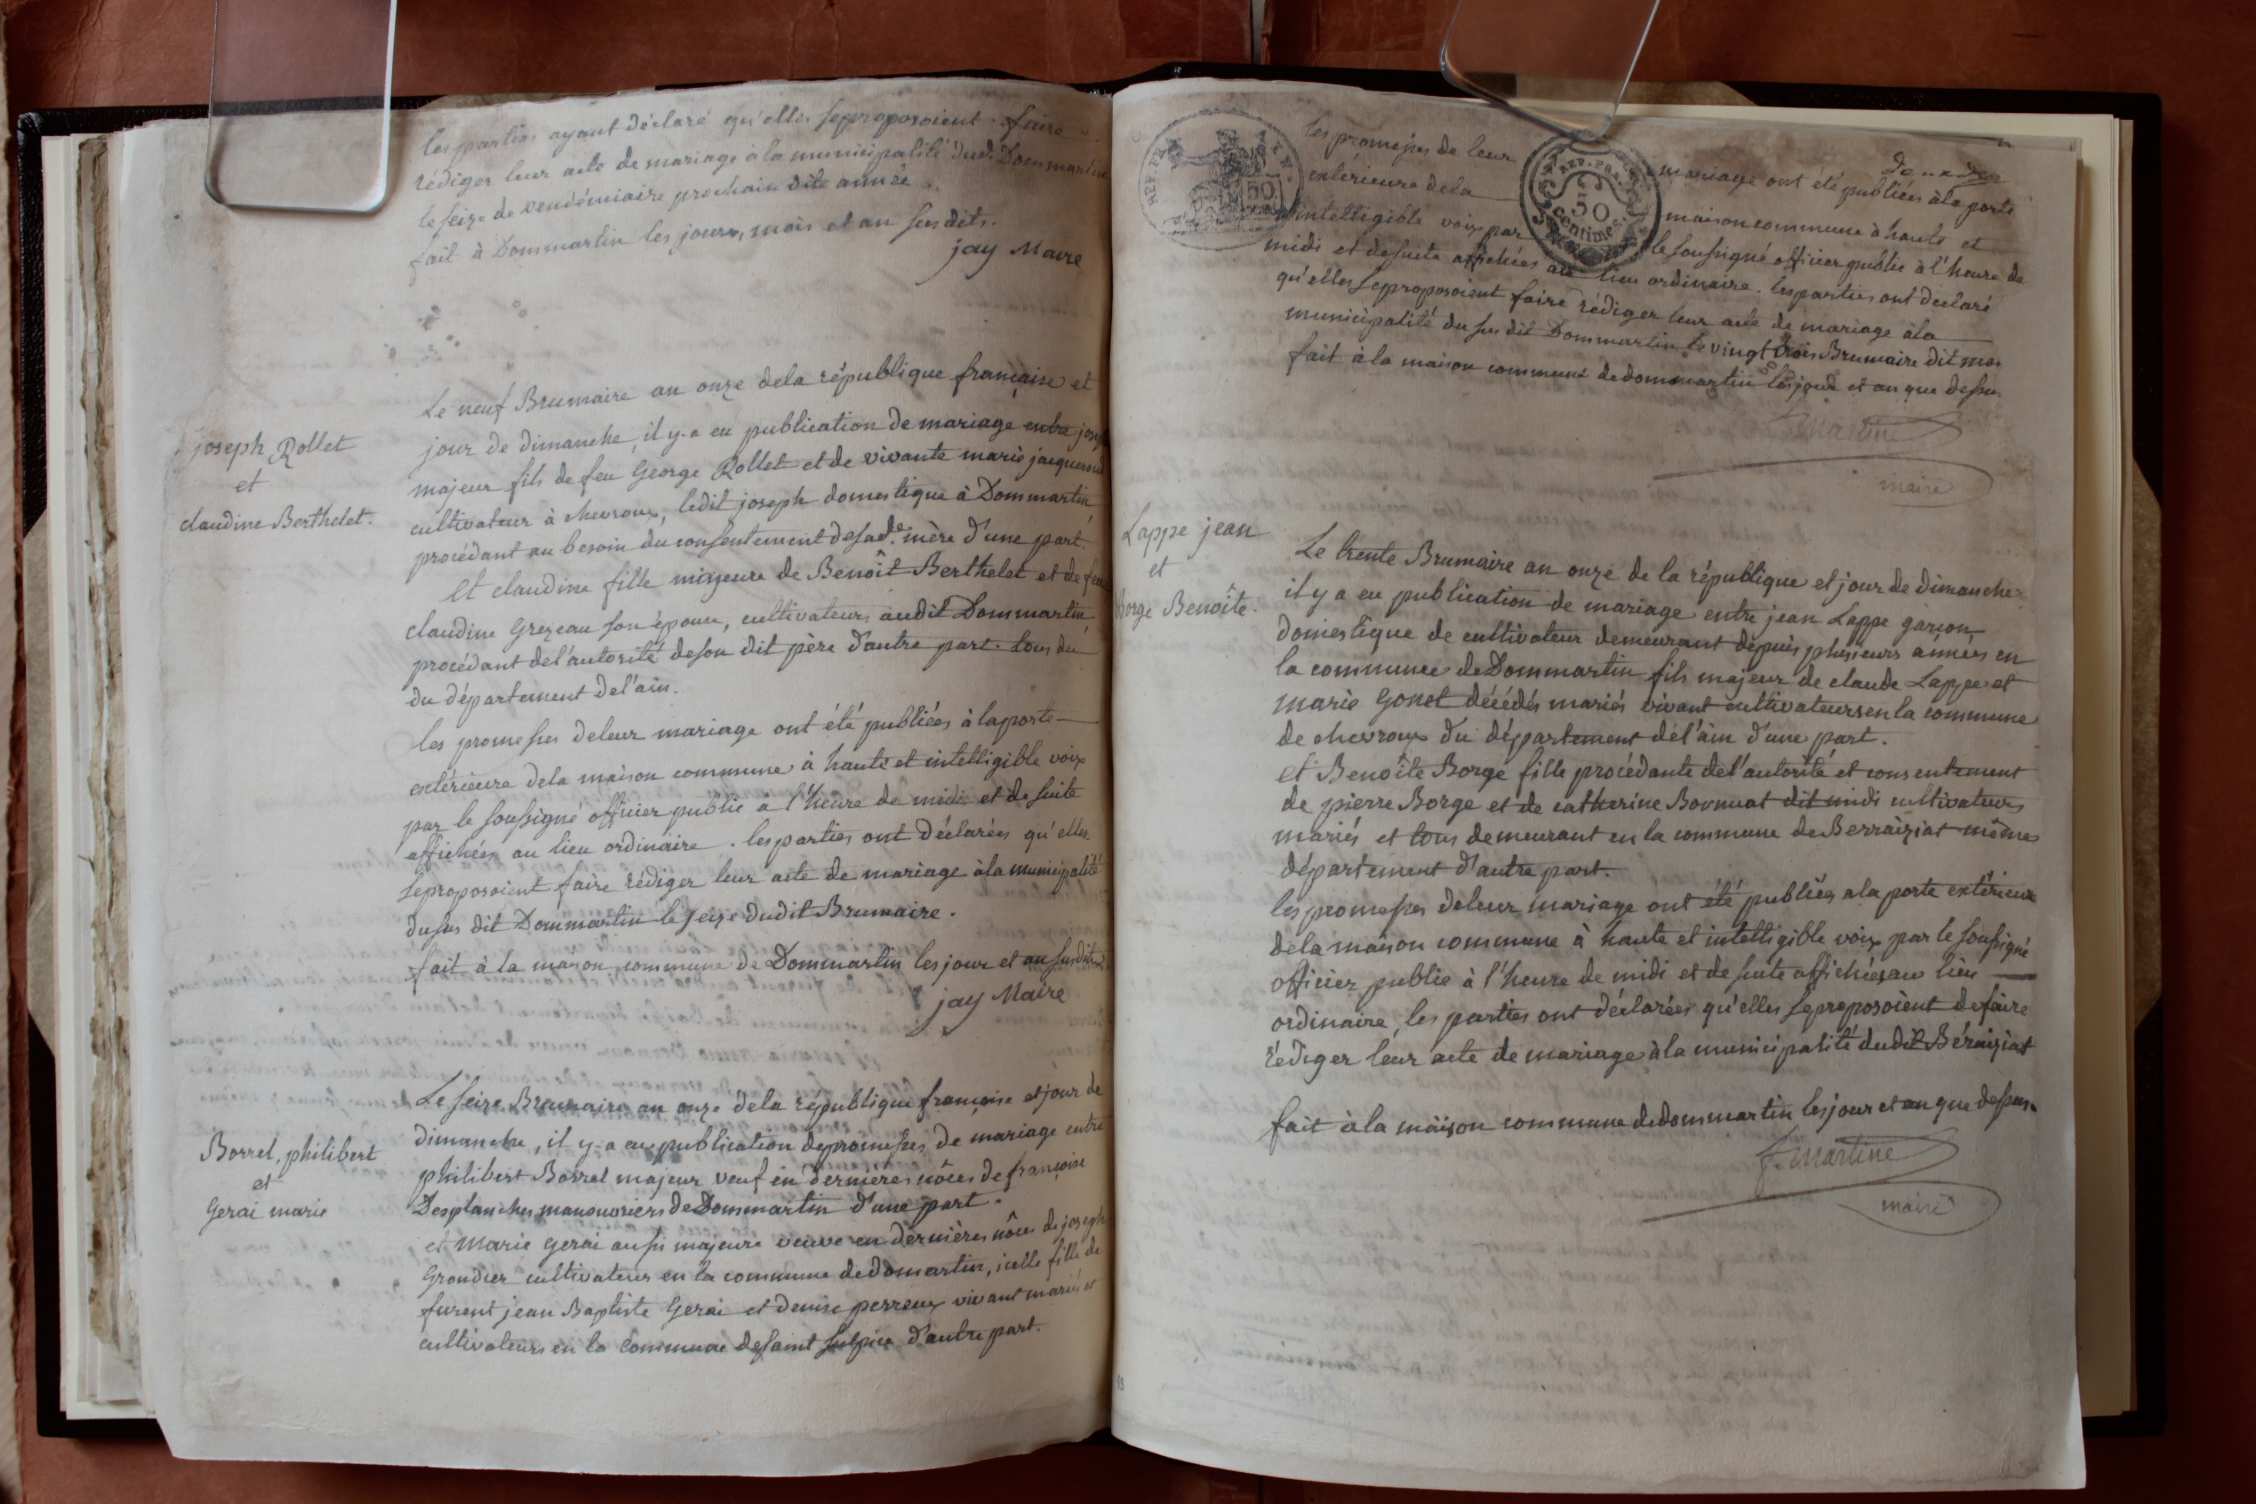 les parties ayant déclaré qu'elles se proposoient faire
rédiger leur acte de mariage à la municipalité dud. Dommartin
le seize de vendémiaire prochain dite année
fait à Dommartin les jours, mois et an sus dits.
jay Maire
joseph Rollet
et
claudine Berthelet.
Le neuf Brumaire an onze dela république française et
jour de dimanche, il y-a eu publication de mariage entre
majeur fils de feu George Rollet et de vivante marie
cultivateur à chevroux, ledit joseph domestique à Dommartin
procédant au besoin du consentement desade. mère d'une part.
Et claudine fille majeure de Benoît Berthelet et de
claudine Grezeau son épouse, cultivateurs audit Dommartin
procédant del'autorité deson dit père d'autre part. tous du
du département del'ain.
les promesses deleur mariage ont été publiées à laporte
extérieure dela maison commune à haute et intelligible voix
par le soussigné officier public à l'heure de midi et de suite
affichées au lieu ordinaire. les parties ont déclarées qu'elles
seproposoient faire rédiger leur acte de mariage àla municipalité
dusus dit Dommartin le seize dudit Brumaire.
fait à la maison commune de Dommartin les jour et an susdits
jay Maire
Borrel, philibert
et
Gerai marie
Le seize Brumaire an onze dela république françoise et jour de
dimanche, il y-a eu publication depromesses de mariage entre
philibert Borrel majeur veuf en dernières nôces de françoise
Desplanches manouvriers de Dommartin d'une part.
et Marie gerai aussi majeure veuve en dernières nôces de joseph
Grondier cultivateurs en la commune dedomartin, icelle fille de
furent jean Baptiste Gerai et denise perreux vivant mariés et
cultivateurs en la commune desaint sulpice d'autre part.
les promesses de leur mariage ont été publiées àla porte
extérieure dela maison commune à haute et
intelligible voix par le soussigné officier public à l'heure de
midi et desuite affichées au lieu ordinaire. les parties ont déclaré
qu'elles se proposoient faire rédiger leur acte de mariage àla
municipalité du sus dit Dommartin le vingt trois Brumaire dit
fait à la maison commune de dommartin les jour et an que dessus
REP.
50
centimes
50
martine
maire
Lappe jean
et
Borge Benoîte.
Le trente Brumaire an onze de la république et jour de dimanche
il y a eu publication de mariage entre jean Lappe garçon
domestique de cultivateur demeurant depuis plusieurs années en
la commune de Dommartin fils majeur de claude Lappe et
marie gonet décédés mariés vivant cultivateurs en la commune
de chevroux du département de l'ain d'une part.
et Benoîte Borge fille procédante de l'autorité et consentement
de pierre Borge et de catherine dit midi cultivateurs
mariés et tous demeurant en la commune de Berraiziat même
département d'autre part.
les promesses deleur mariage ont été publiées a la porte extérieur
dela maison commune à haute et intelligible voix par le soussigné
officier public à l'heure de midi et de suite affichées au lieu
ordinaire, les parties ont déclarées qu'elles se proposoient de faire
rédiger leur acte de mariage à la municipalité dudit Béraiziat
fait à la maison commune de dommartin les jour et an que dessus.
f. martine
maire